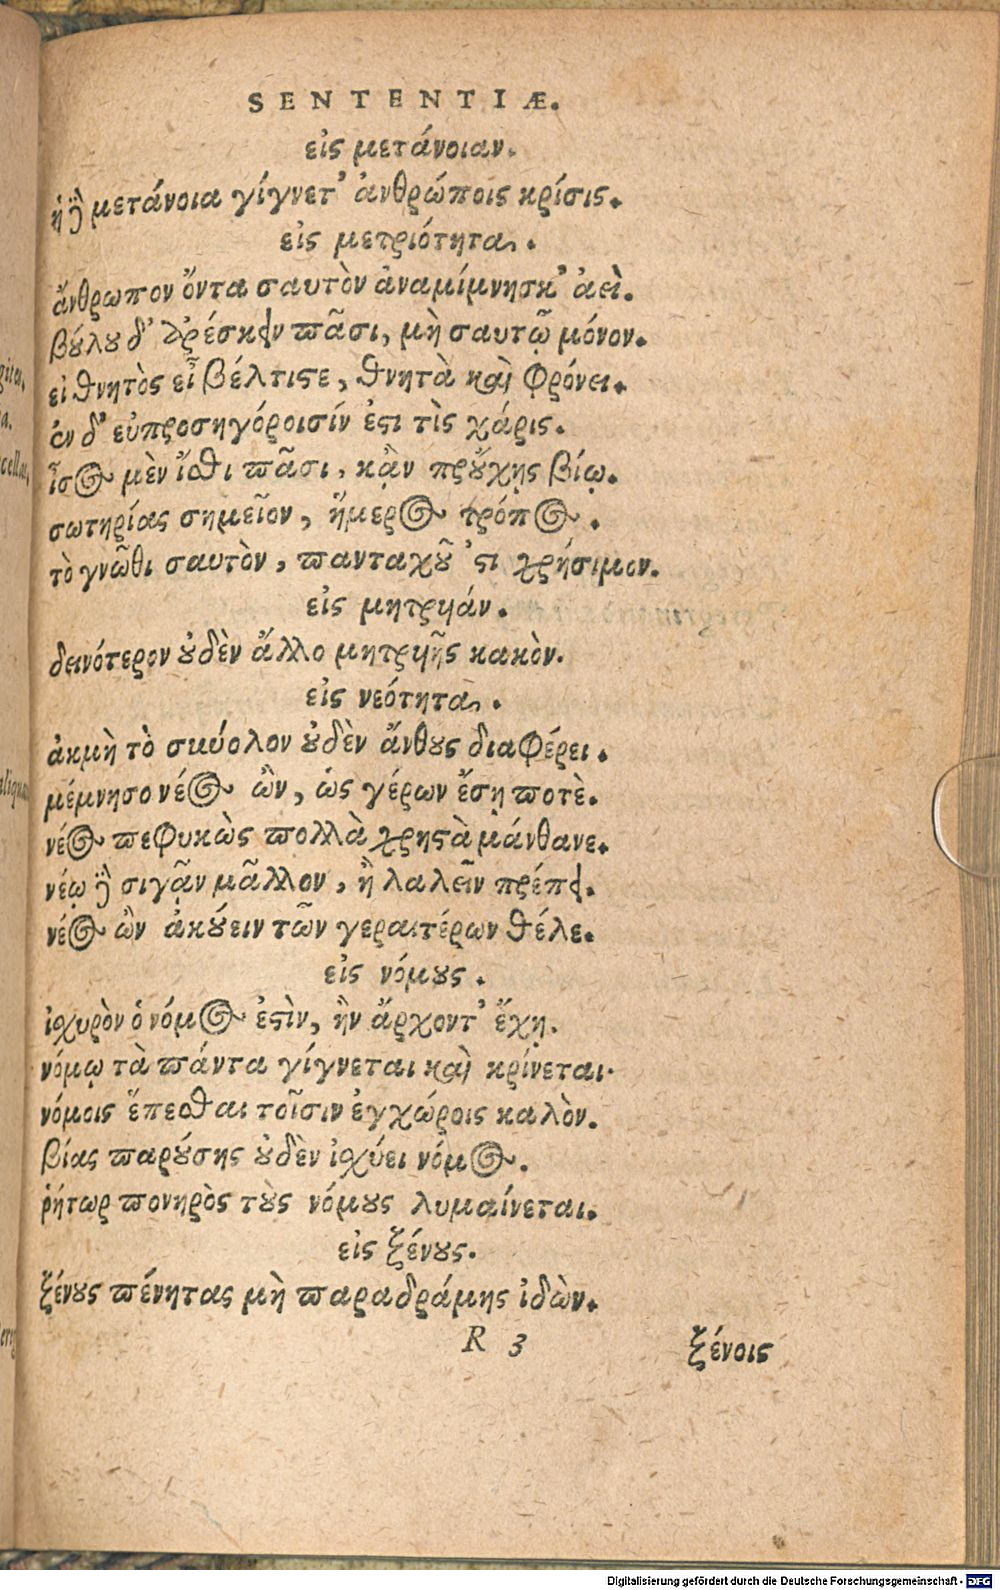 SENTENTIÆ.
εἰς μετάνοιαν.
ἡ γὸ μετάνοια γίγνετ' ἀνθρώποις κρίσις.
εἰς μετριότητα.
ἄνθρωπον ὄντα σαυτὸν ἀναμίμνησκ' ἀεὶ.
βȣ́λȣ δ' ἀρέσκειν πᾶσι, μὴ σαυτῷ μόνον.
εἰ θνητὸς εἶ βέλτιϛε, θνητὰ καὶ φρόνει.
ἐν δ' εὐπροσηγόροισίν ἐϛι τὶς χάρις.
ἶσος μὲν ἴσθι πᾶσι, κᾂν πρȣ̓́χῃς βίῳ.
σωτηρίας σημεῖον, ἥμερος τρόπος.
τὸ γνῶθι σαυτὸν, πανταχȣ͂ 'ϛι χρήσιμον.
εἰς μητρυιάν.
δεινότερον ȣ̓δὲν ἄλλο μητρυιῆς κακὸν.
εἰς νεότητα.
ἀκμὴ τὸ σκύολον ȣ̓δὲν ἄνθȣς διαφέρει.
μέμνησο νέος ὢν, ὡς γέρων ἔσῃ ποτὲ.
νέος πεφυκὼς πολλὰ χρηϛὰ μάνθανε.
νέῳ γὸ σιγᾷν μᾶλλον, ἢ λαλεῖν πρέπει.
νέος ὢν ἀκȣ́ειν τῶν γεραιτέρων θέλε.
εἰς νόμȣς.
ἰσχυρὸν ὁ νόμος ἐϛὶν, ἢν ἄρχοντ' ἔχῃ.
νόμῳ τὰ πάντα γίγνεται καὶ κρίνεται.
νόμοις ἕπεσθαι τοῖσιν ἐγχώροις καλὸν.
βίας παρȣ́σης ȣ̓δὲν ἰσχύει νόμος.
ῥήτωρ πονηρὸς τȣ̀ς νόμȣς λυμαίνεται.
εἰς ξένȣς.
ξένȣς πένητας μὴ παραδράμῃς ἰδὼν.
R 3 ξένοις
Digitalisierung gefördert durch die Deutsche Forschungsgemeinschaft - DFG